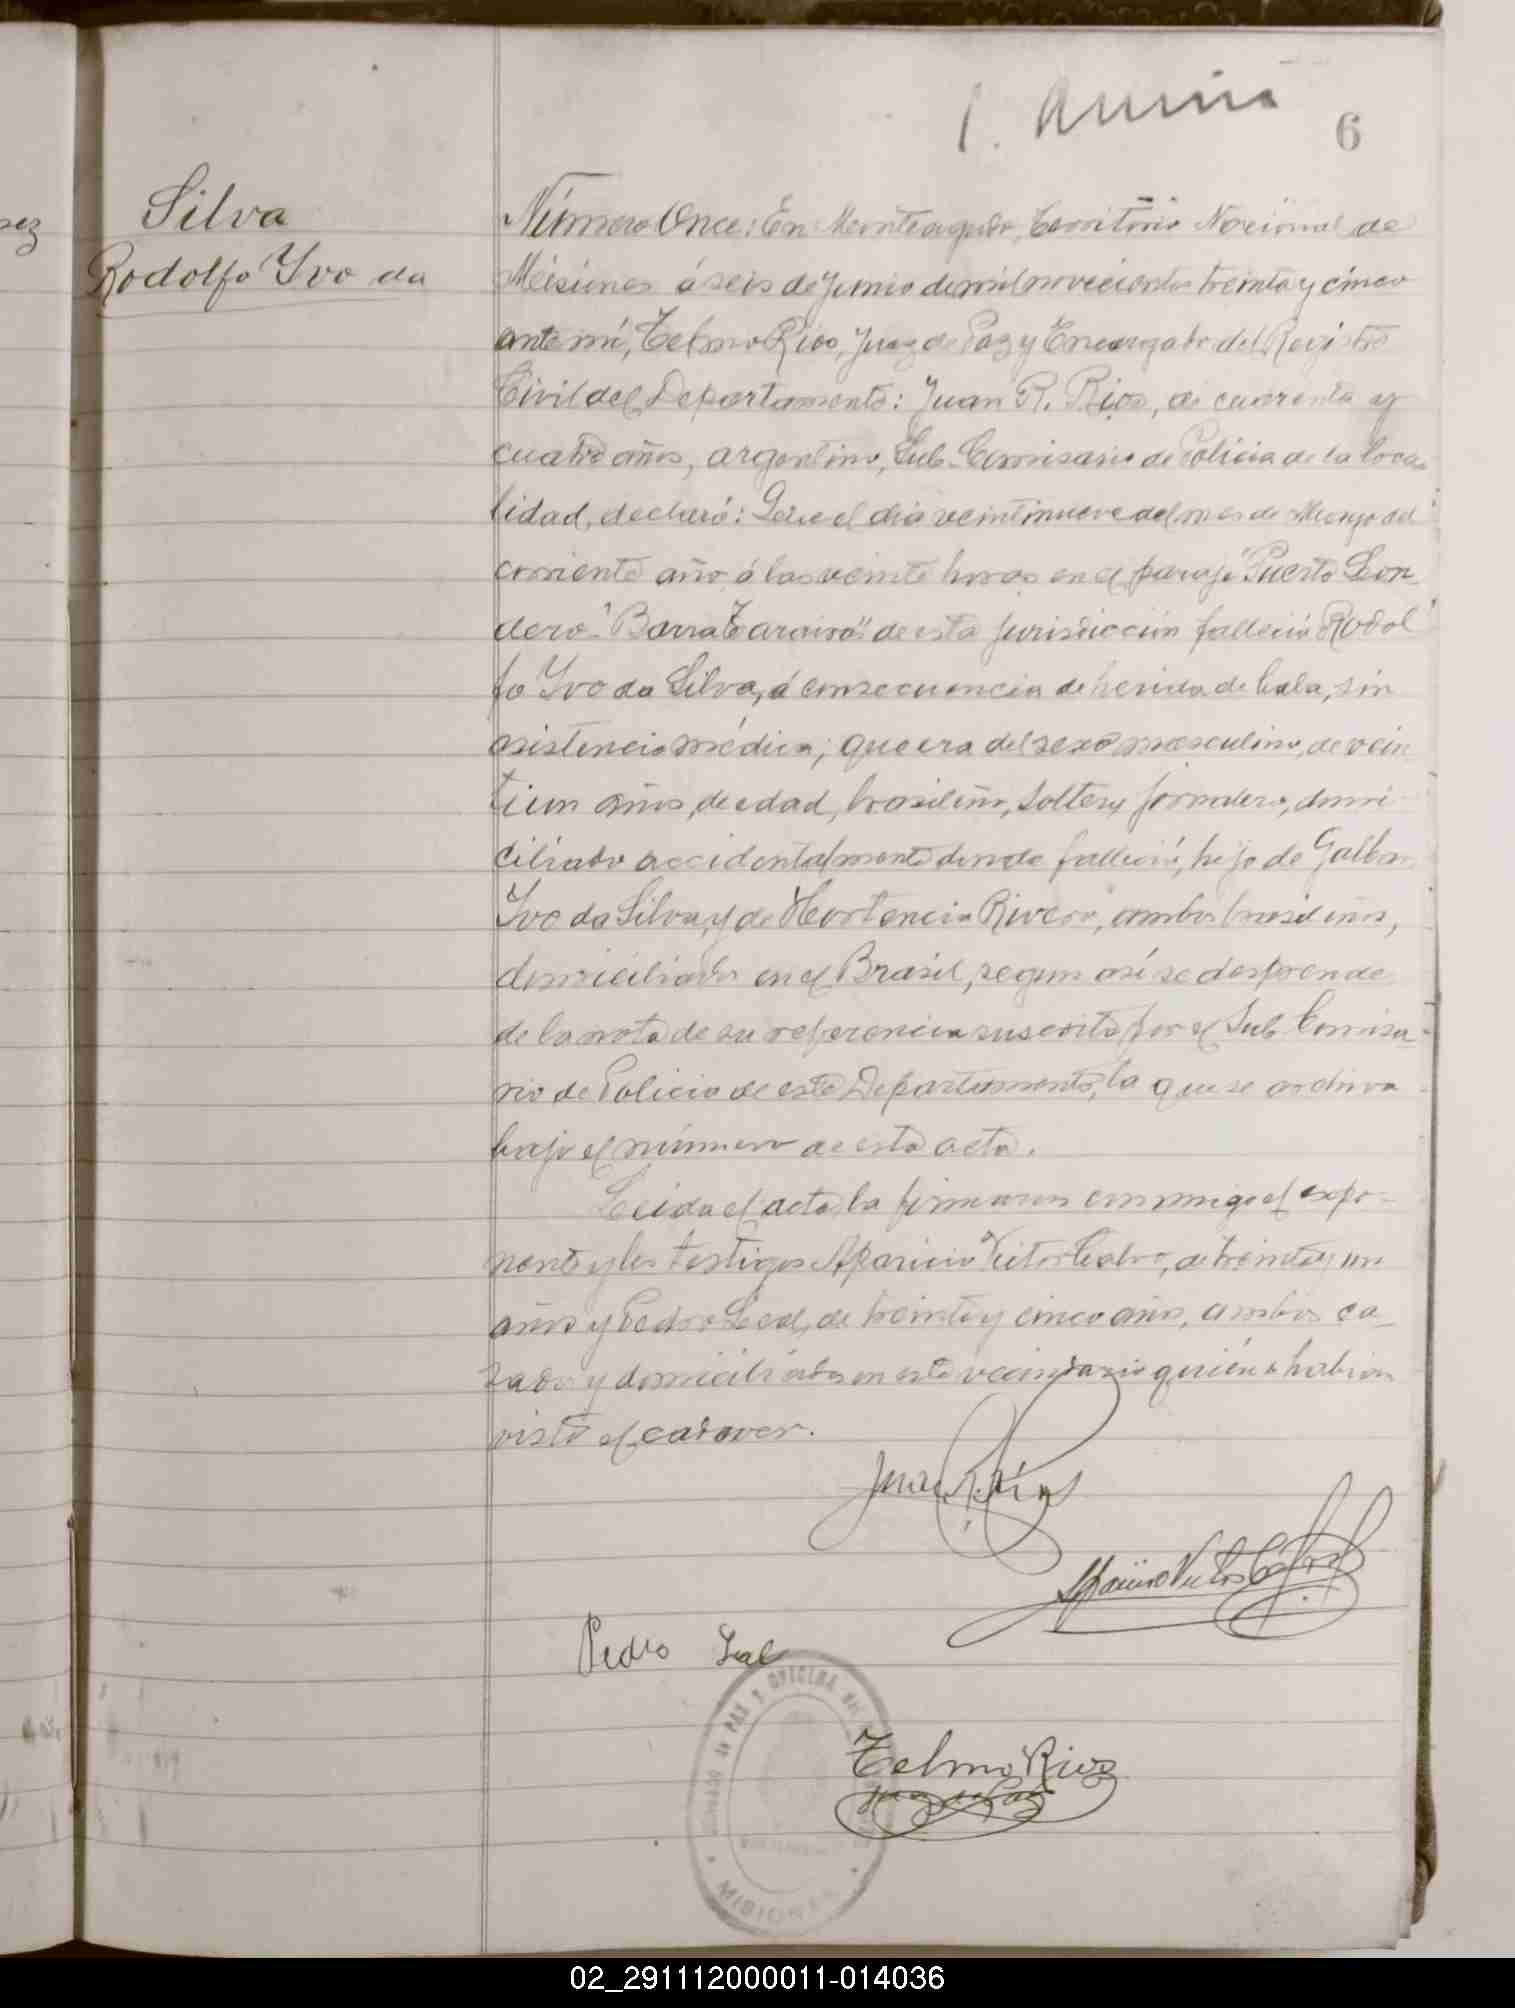 6
Silva
Rodolfo Yvo da
Número Once: En Monteagudo, Territorio Nacional de
Misiones á seis de Junio de mil novecientos treinta y cinco
ante mi, Telmo Rios, Juez de Paz y Encargado del Registro
Civil del Departamento: Juan R. Rios, de cuarenta y
cuatro años, argentino, Sub-Comisario de Policia de la loca-
lidad, declaró: Que el dia veintinueve del mes de Mayo del
corriente año á las veinte horas en el paraje "Puerto Lon-
dero" "Barra Taraira" de esta jurisdicción falleció Rodol-
fo Yvo da Silva, á consecuencia de herida de bala, sin
asistencia médica; que era del sexo masculino, de vein
tiun años de edad, brasileño, soltero, jornalero, domi-
ciliado accidentalmente donde falleció, hijo de
Yvo da Silva, y de Hortencia Rivero, ambos brasileños,
domiciliados en el Brasil, segun así se desprende
de la nota de su referencia suscrita por el Sub Comisa-
rio de Policia de este Departamento, la que se archiva
bajo el número de esta acta.
Leida el acta la firmaron conmigo el expo-
nente y los testigos Aparicio Victor Castro, de treinta y un
años y Pedro Leal, de treinta y cinco años, ambos ca-
sados y domiciliados en este vecindario quiénes habian
visto el cadaver.
Juan R. Rios
Aparicio Victor Castro
Pedro Leal
JUZGADO DE PAZ Y OFICINA DEL
MISIONES
Telmo Rios
Juez de Paz
02_291112000011-014036